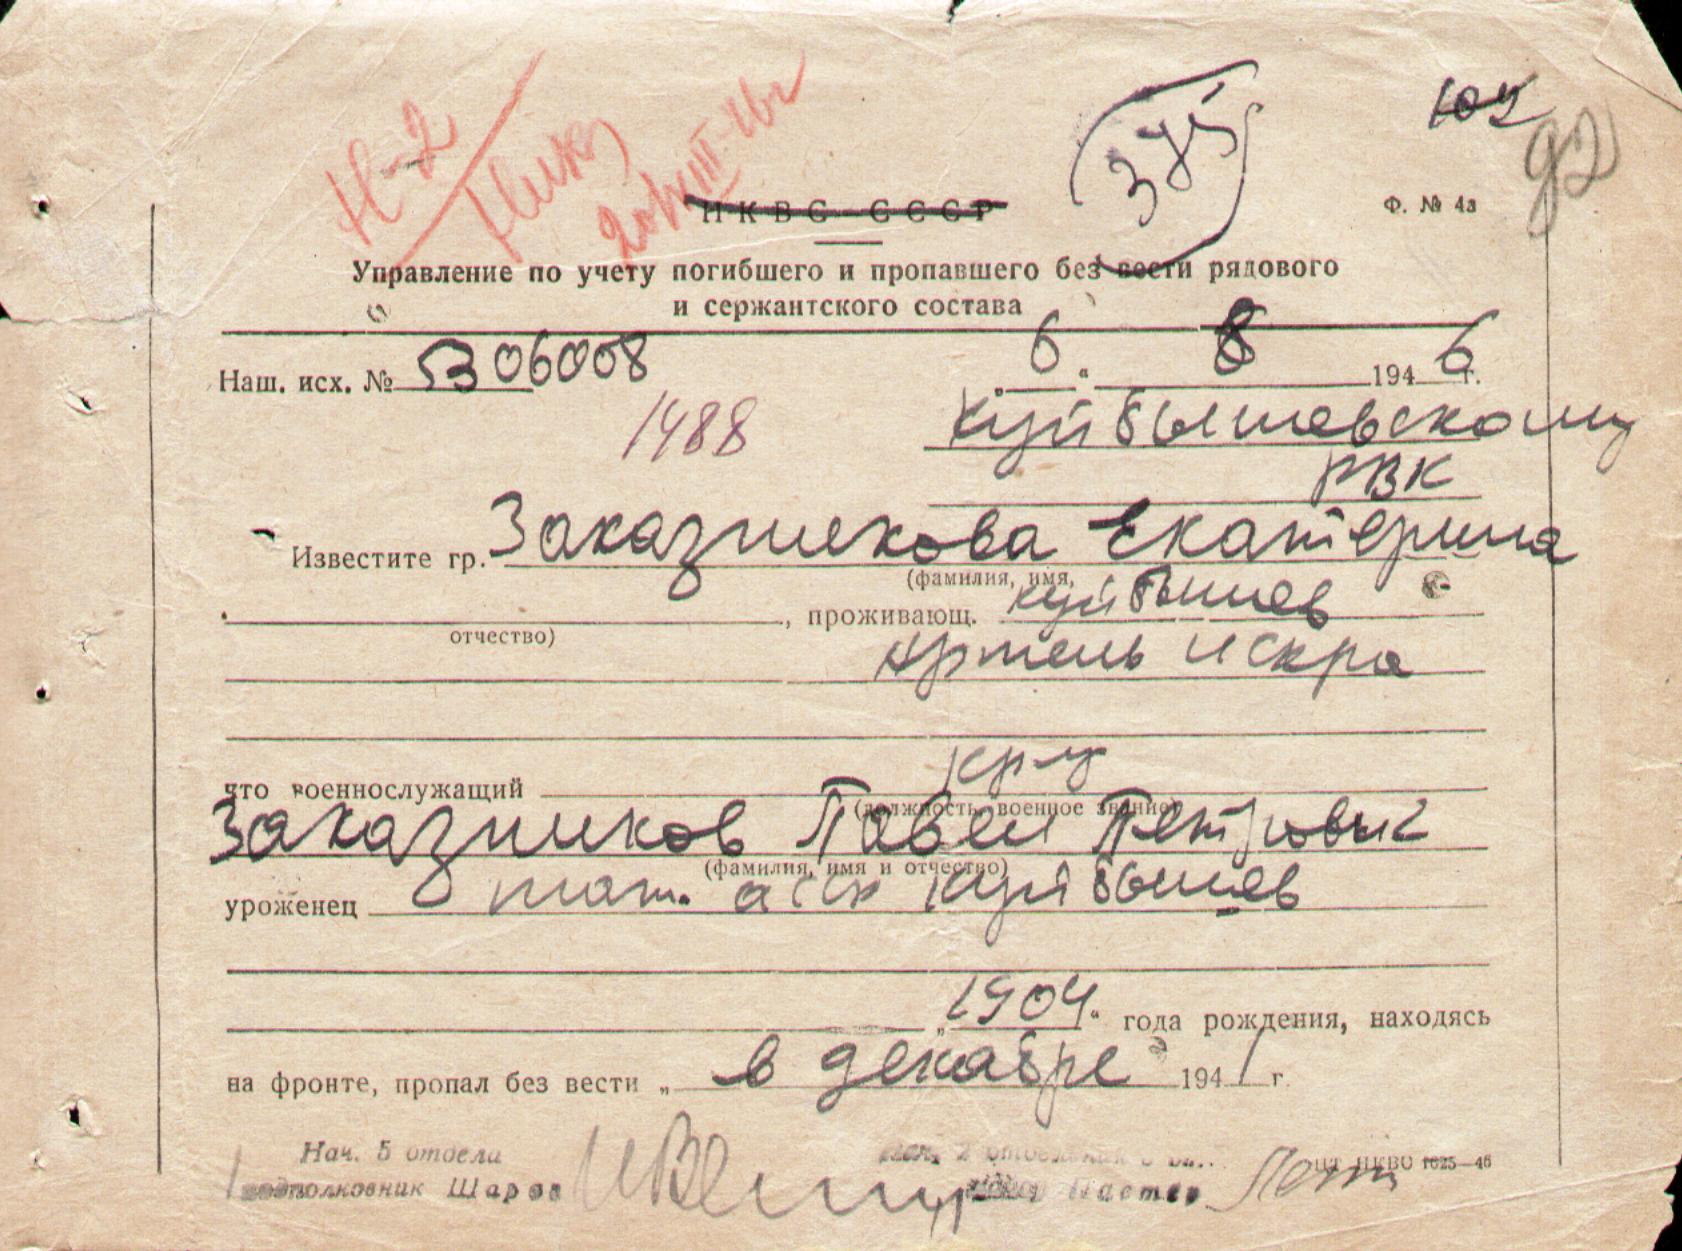 102
92
Н-2
ЗУ
НКВС СССР
Ф. № 4а
Управление по учету погибшего и пропавшего без вести рядового
и сержантского состава
Наш. исх. № 506008 6 " 8 1946 г.
1488
Куйбышевскому
РВК
Известите гр. Заказчикова Екатерина
(фамилия, имя,
, проживающ. Куйбышев
отчество)
Артель Искра
что военнослужащий кр-ц
(должность, военное звание)
Заказчиков Павел Петрович
(фамилия, имя и отчество)
уроженец тат. асср Куйбышев
„1904" года рождения, находясь
на фронте, пропал без вести „ в декабре 1941 г.
Нач. 5 отдела
подполковник Шаров
1625—46